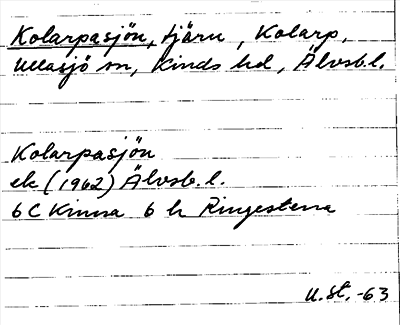 Kolarpasjön, tjärn, Kolarp,
Ullasjö sn, Kinds hd, Älvsb.l.
Kolarpasjön
ek (1962) Älvsb.l.
6 C Kinna 6 h Ringestena
U.St. -63